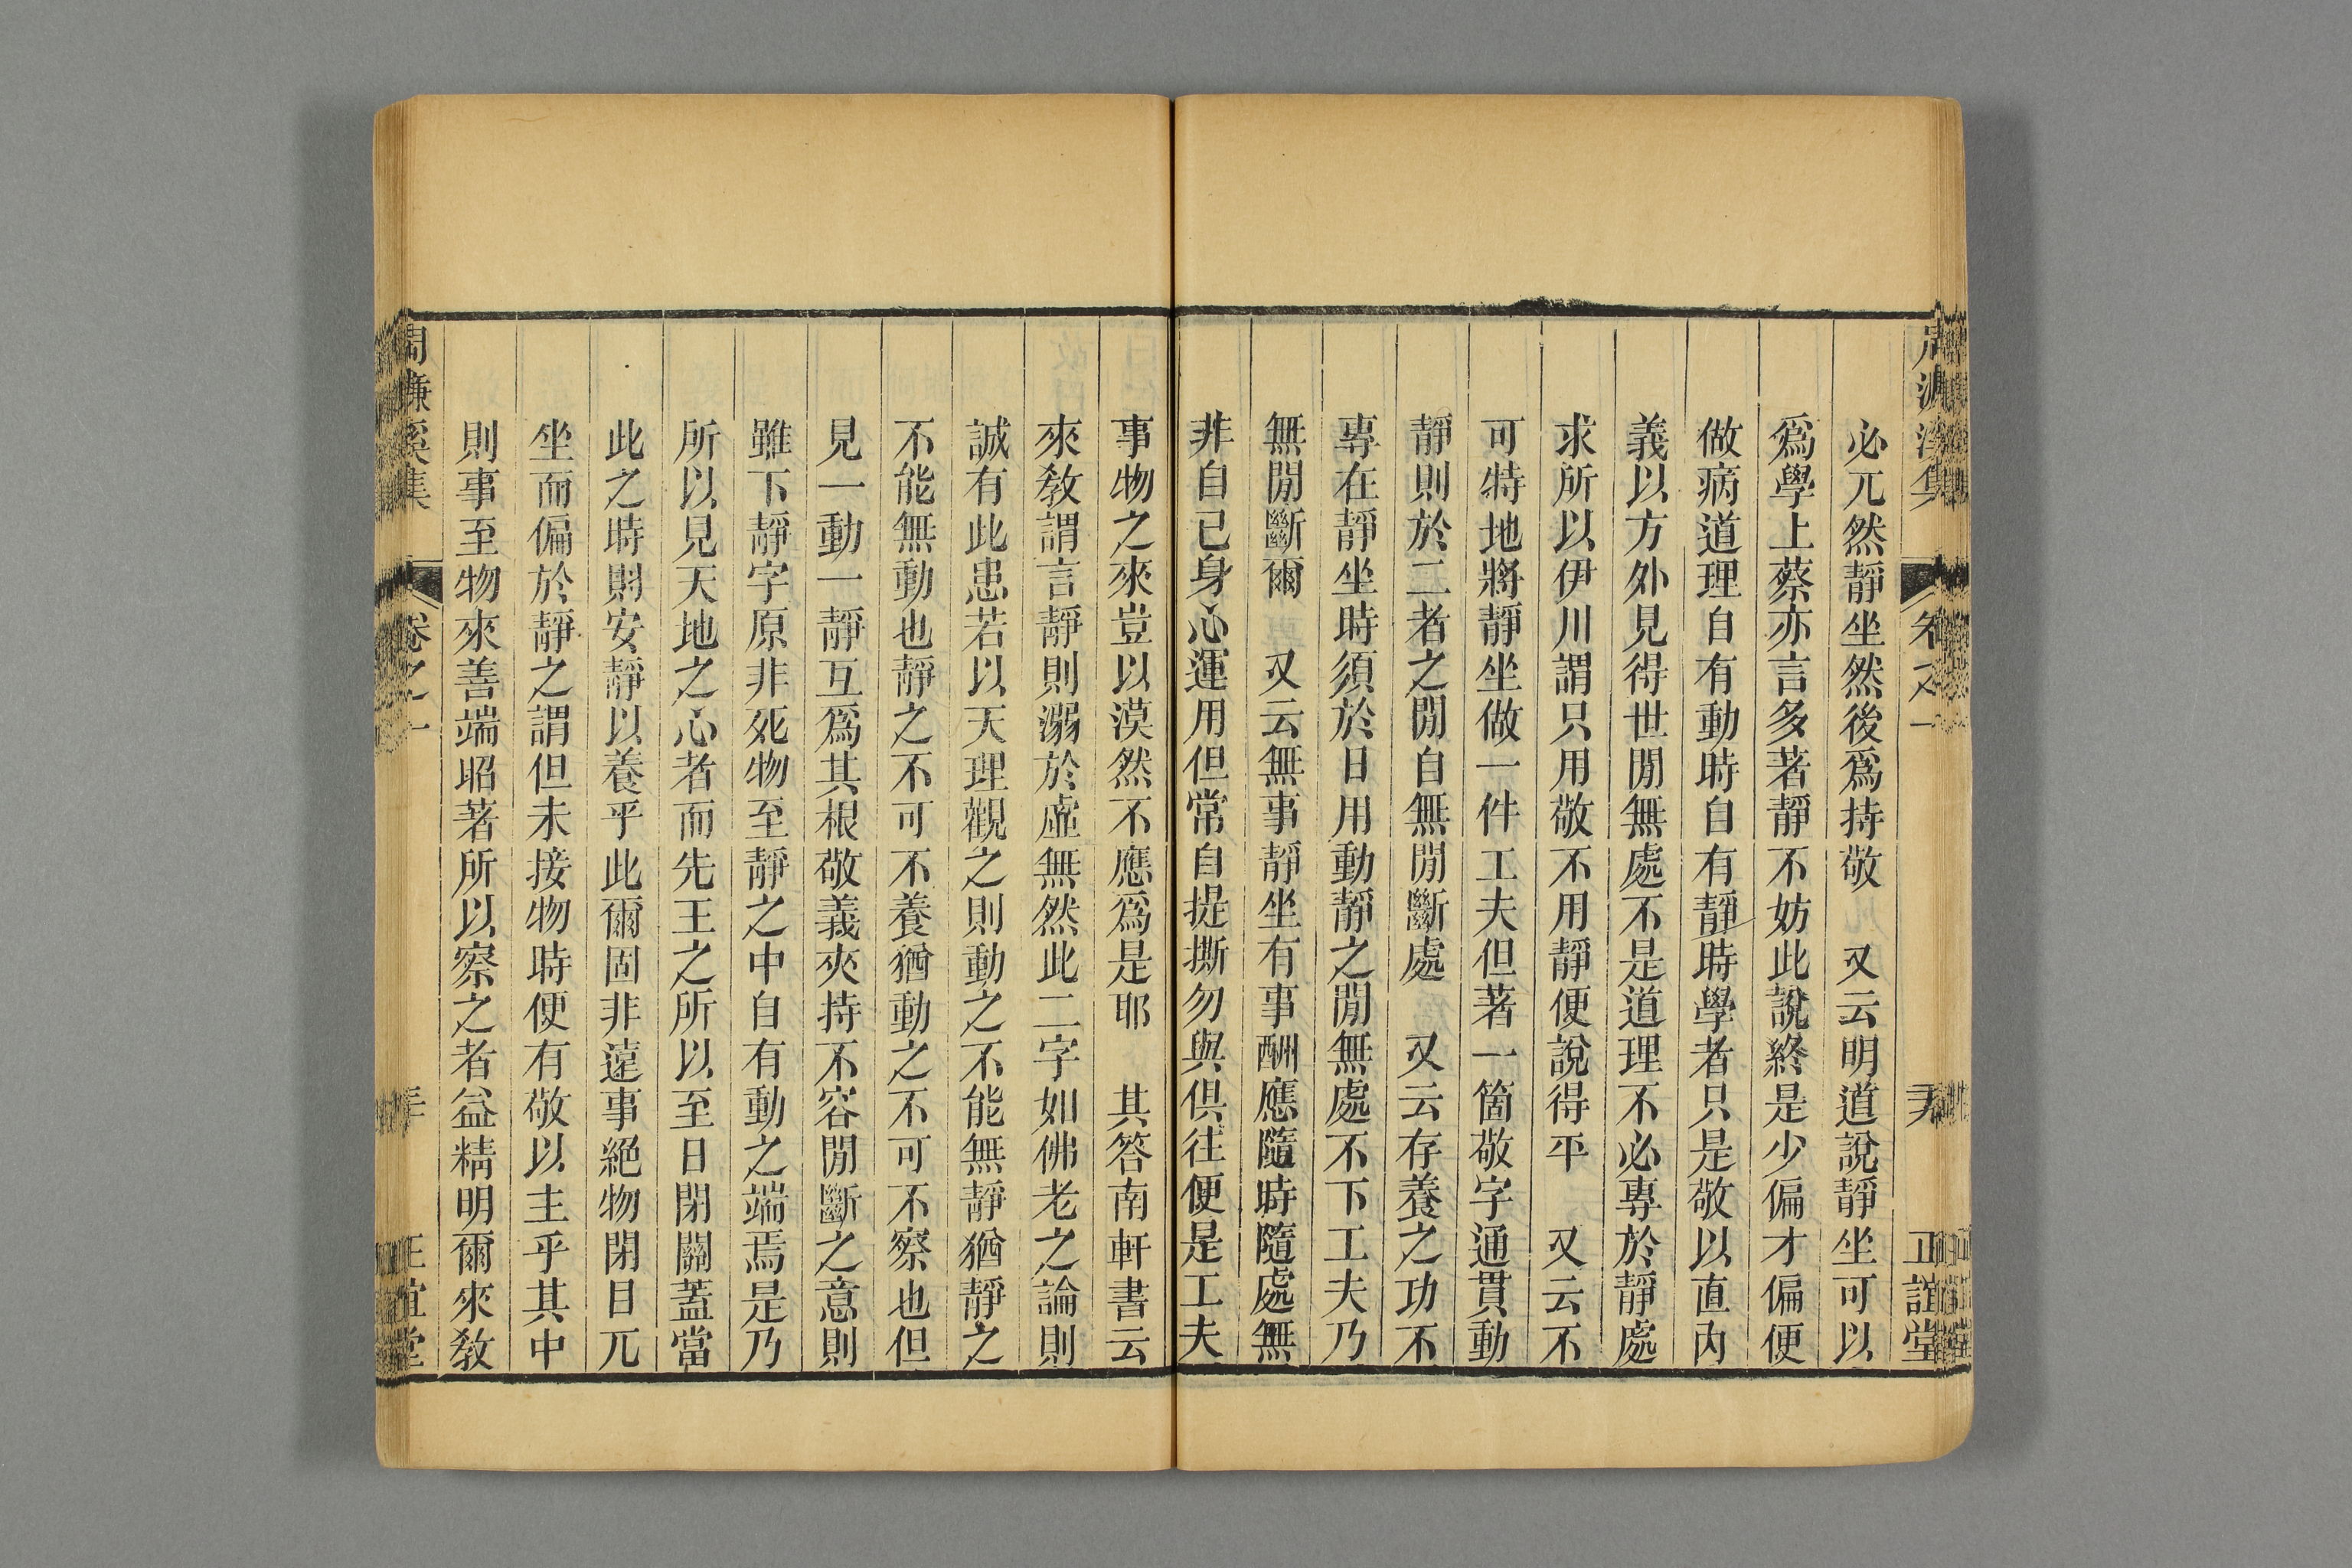 必兀然靜坐然後爲持敬　又云明道說靜坐可以
爲學上蔡亦言多著靜不妨此說終是少偏才偏便
做病道理自有動時自有靜時學者只是敬以直內
義以方外見得世閒無處不是道理不必專於靜處
求所以伊川謂只用敬不用靜便說得平　又云不
可特地將靜坐做一件工夫但著一箇敬字通貫動
靜則於二者之閒自無閒斷處　又云存養之功不
專在靜坐時須於日用動靜之閒無處不下工夫乃
無閒斷爾　又云無事靜坐有事酬應隨時隨處無
非自己身心運用但常自提撕勿與俱往便是工夫
事物之來豈以漠然不應爲是耶　其答南軒書云
來敎謂言靜則溺於虛無然此二字如佛老之論則
誠有此患若以天理觀之則動之不能無靜猶靜之
不能無動也靜之不可不養猶動之不可不察也但
見一動一靜互爲其根敬義夾持不容閒斷之意則
雖下靜字原非死物至靜之中自有動之端焉是乃
所以見天地之心者而先王之所以至日閉關蓋當
此之時則安靜以養乎此爾固非遠事絕物閉目兀
坐而偏於靜之謂但未接物時便有敬以主乎其中
則事至物來善端昭著所以察之者益精明爾來敎
周濂溪集
卷之一
正誼堂